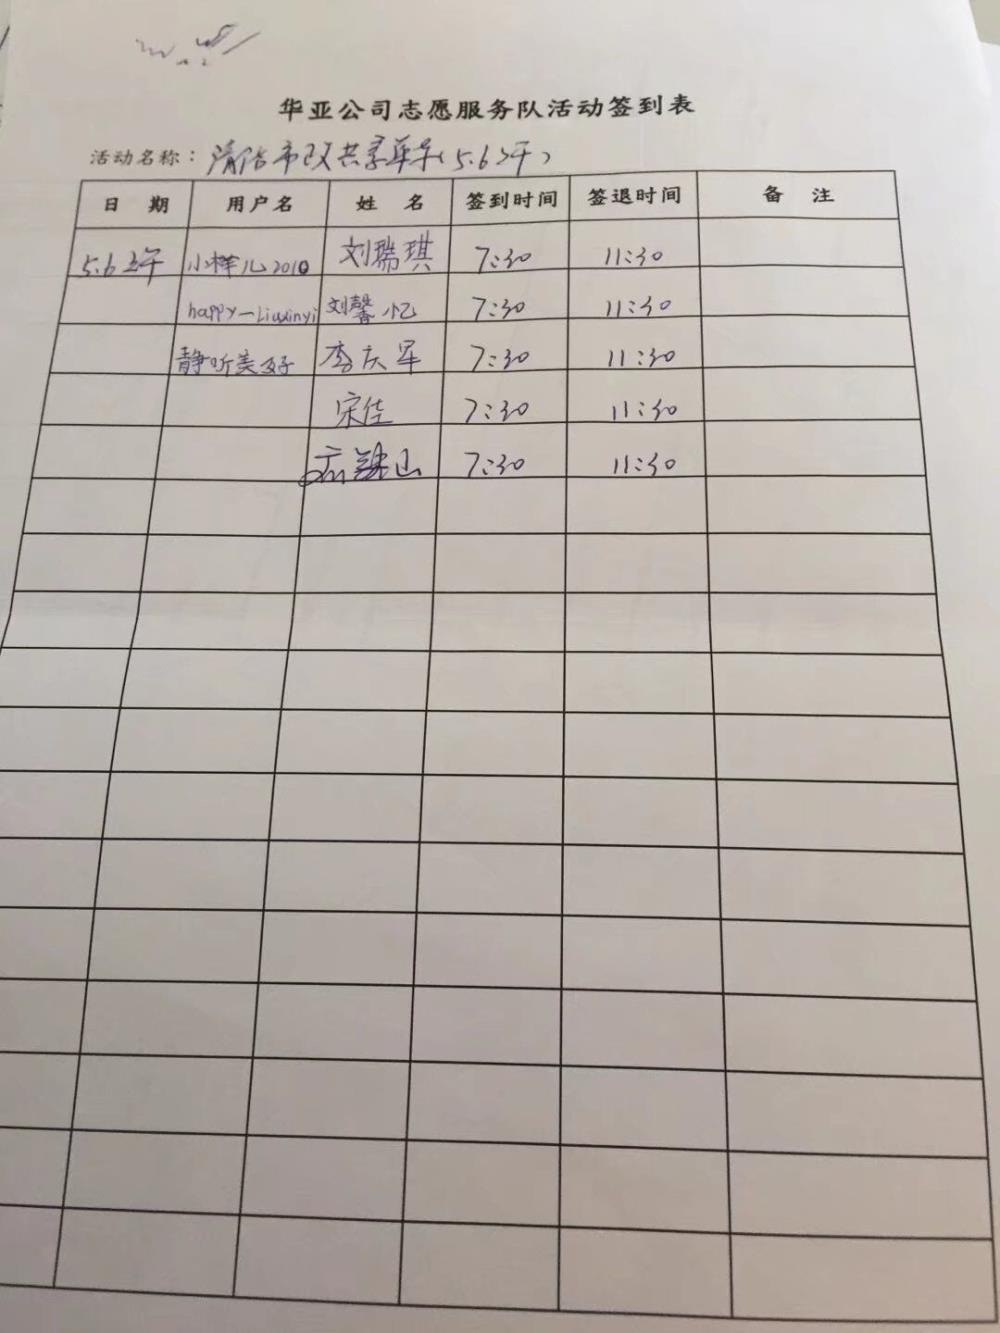 华亚公司志愿服务队活动签到表
活动名称：清洁市政共享单车(5.6上午)
日 期 用户名 姓 名 签到时间 签退时间 备 注
5.6上午 小样儿2010 刘瑞琪 7:30 11:30
happy—Liuxinyi 刘馨忆 7:30 11:30
静听美好 李庆军 7:30 11:30
宋佳 7:30 11:30
7:30 11:30